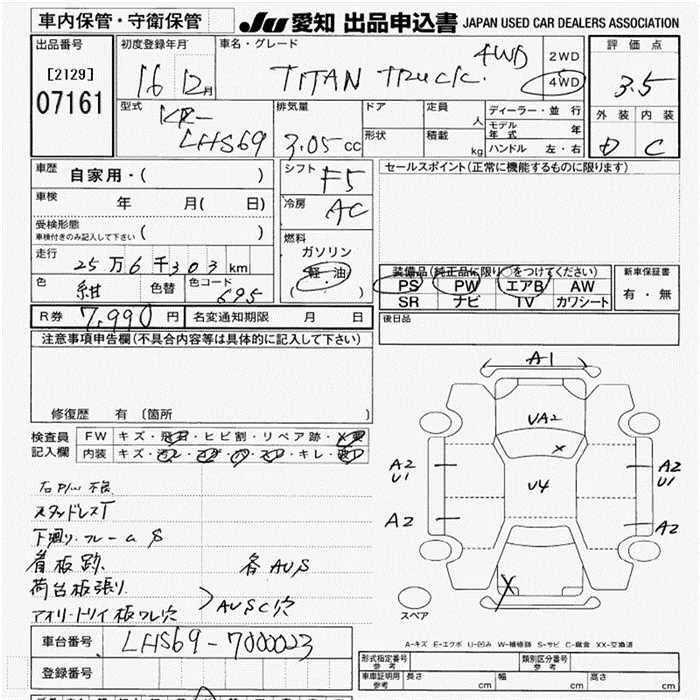 車内保管・守衛保管
JU 愛知 出品申込書 JAPAN USED CAR DEALERS ASSOCIATION
出品番号
[2129]
07161
初度登録年月
16 12月
車名・グレード
TITAN TRUCK. 4WD
2WD
4WD
評価点
3.5
外装 内装
D C
型式
KR-
LHS69
排気量
3.05cc
ドア
形状
定員
人
積載
kg
ディーラー・並行
モデル年式 年
ハンドル 左・右
車歴 自家用・( )
車検 年 月( 日)
受検形態
車検付きのみ記入して下さい ( )
走行 25万6千303km
色 紺 色替 色コード 695
シフト F5
冷房 AC
燃料
ガソリン
軽・油
( ・ )
セールスポイント(正常に機能するものに限ります)
装備品(純正品に限り○をつけてください)
PS PW エアB AW
SR ナビ TV カワシート
新車保証書
有・無
R券 7,990円
名変通知期限 月 日
後日品
注意事項申告欄(不具合内容等は具体的に記入して下さい)
修復歴 有 〔箇所
検査員
記入欄
FW キズ・飛石・ヒビ割・リペア跡・X要
内装 キズ・汚レ・コゲ・穴・スレ・キレ・破レ
右P/W不良
スタッドレスT
下廻り.フレームS
看板跡.
各AUS
荷台板張り
アオリ・トリイ板ワレ穴
AUSC穴
A1
UA2
X
U4
A2
U1
A2
A2
U1
A2
X
スペア
A-キズ E-エクボ U-凹み W-補修跡 S-サビ C-腐食 XX-交換済
車台番号 LHS69-7000023
登録番号
形式指定番号
参考
類別区分番号
参考
車庫証明用
参考
長さ cm 幅 cm 高さ cm